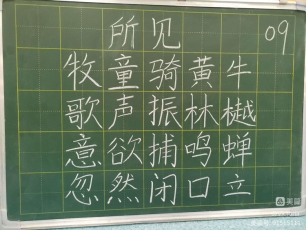 所见
09
牧童骑黄牛
歌声振林樾
意欲捕鸣蝉
忽然闭口立